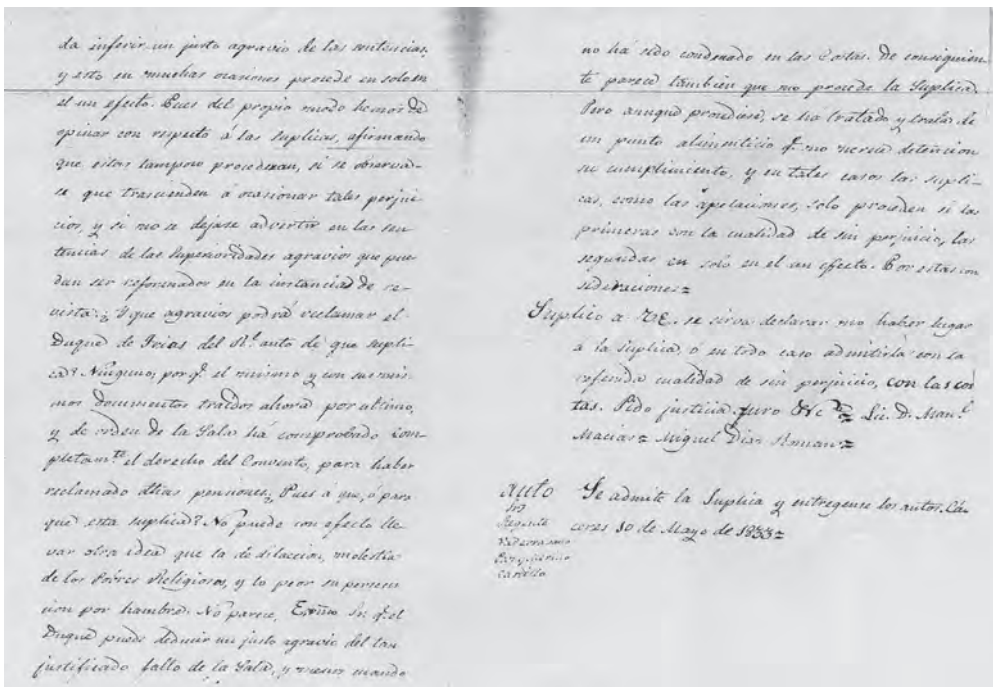 da inferir un justo agravio de las sentencias,
y esto en muchas ocasiones procede en solo en
el un efecto. Pues del propio modo hemos de
opinar con respecto á las suplicas, afirmando
que estas tampoco procederan, si se observa-
se que trascienden á ocasionar tales perjui-
cios, y si no se dejase advertir en las sen-
tencias de las Superioridades agravios que pue-
dan ser reformados en la instancia de re-
vista. ¿Y que agravios podrá reclamar el
Duque de Frias del Rl. auto de que supli-
ca? Ninguno; por q.e el mismo y con sus mis-
mos documentos traidos ahora por ultimo,
y de orden de la Sala há comprobado com-
pletam.te el derecho del Convento, para haber
reclamado dhas pensiones. ¿Pues á que, ó para
qué esta suplica? No puede con efecto lle-
var otra idea que la de dilacion, molestia
de los Pobres Religiosos, y lo peor su persecu-
cion por hambre. No parece, Exmo Sr. q.e el
Duque puede deducir un justo agravio del tan
justificado fallo de la Sala, y menos cuando
no há sido condenado en las Costas. De consiguien-
te parece tambien que no procede la Suplica.
Pero aunque procediese, se ha tratado y trata de
un punto alimenticio q.e no merece detencion
su cumplimiento, y en tales casos las supli-
cas, como las apelaciones, solo proceden si las
primeras con la cualidad de sin perjuicio, las
segundas en solo en el un efecto. Por estas con
sideraciones=
Suplico a VE. se sirva declarar no haber lugar
á la suplica, ó en todo caso admitirla con la
referida cualidad de sin perjuicio, con las cos
tas. Pido justicia juro &c.= Lic. D. Man.l
Macias= Miguel Diaz Roman=
Auto Se admite la Suplica y entreguense los autos. Cá-
ceres 10 de Mayo de 1833=
Sres
Regente